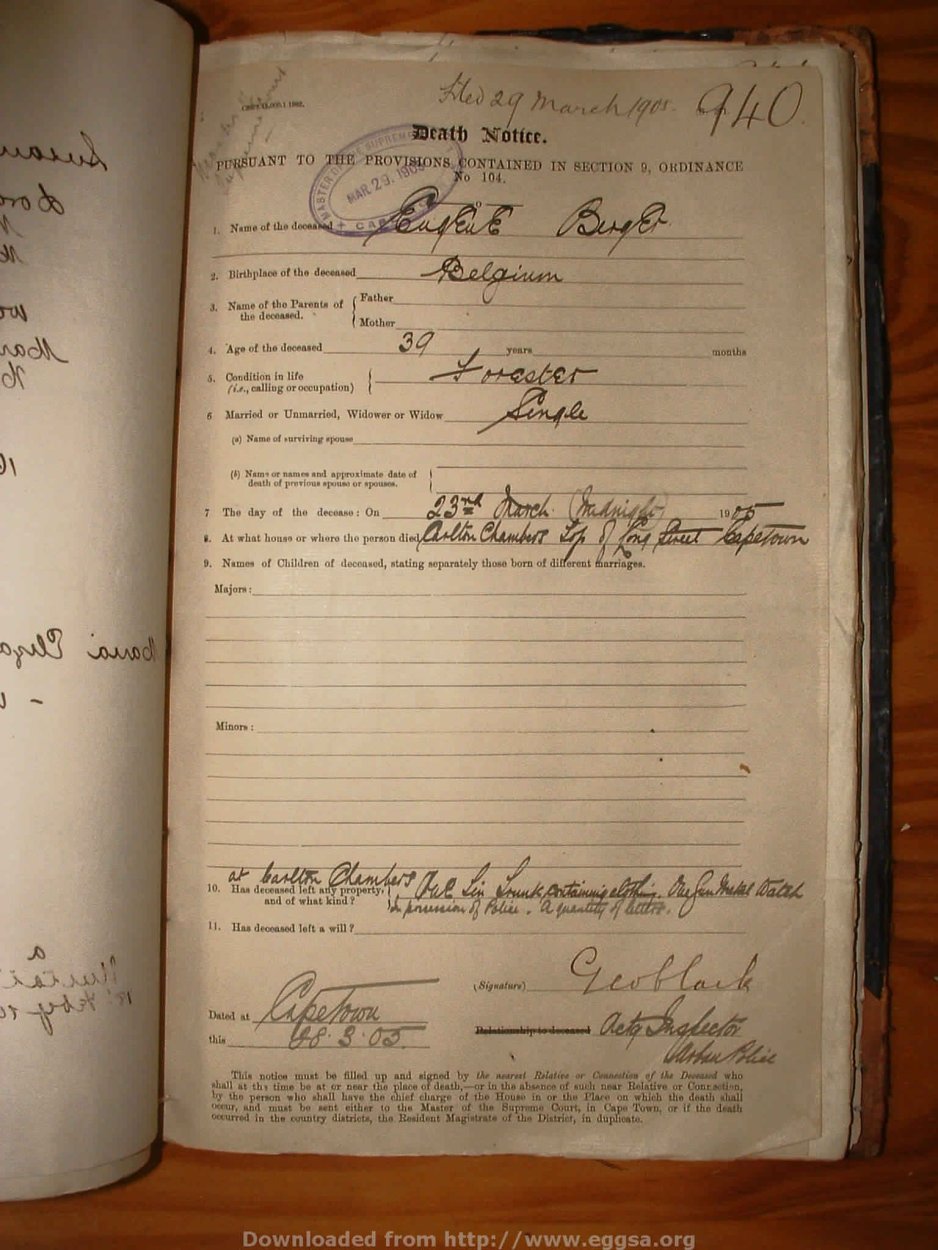 Filed 29 March 1905. 940.
Death Notice.
MASTER OF THE SUPREME
MAR 29. 1905
PURSUANT TO THE PROVISIONS CONTAINED IN SECTION 9, ORDINANCE
No 104.
1. Name of the deceased Eugene Berger
2. Birthplace of the deceased Belgium
3. Name of the Parents of the deceased. Father
Mother
4. Age of the deceased 39 years months
5. Condition in life (i.e., calling or occupation) Forester
6 Married or Unmarried, Widower or Widow Single
(a) Name of surviving spouse
(b) Name or names and approximate date of
death of previous spouse or spouses.
7 The day of the decease: On 23rd March (Midnight) 1905
8. At what house or where the person died Carlton Chambers Top of Long Street Capetown
9. Names of Children of deceased, stating separately those born of different marriages.
Majors:
Minors:
at Carlton Chambers
10. Has deceased left any property, One Tin Trunk containing clothing. One Gun Metal Watch
and of what kind? in possession of Police. A quantity of letters.
11. Has deceased left a will?
(Signature) Geo Clark
Dated at Capetown
this 28.3.05.
Relationship to deceased Actg Inspector
Police
This notice must be filled up and signed by the nearest Relative or Connection of the Deceased who
shall at the time be at or near the place of death,—or in the absence of such near Relative or Connection,
by the person who shall have the chief charge of the House in or the Place on which the death shall
occur, and must be sent either to the Master of the Supreme Court, in Cape Town, or if the death
occurred in the country districts, the Resident Magistrate of the District, in duplicate.
Downloaded from http://www.eggsa.org